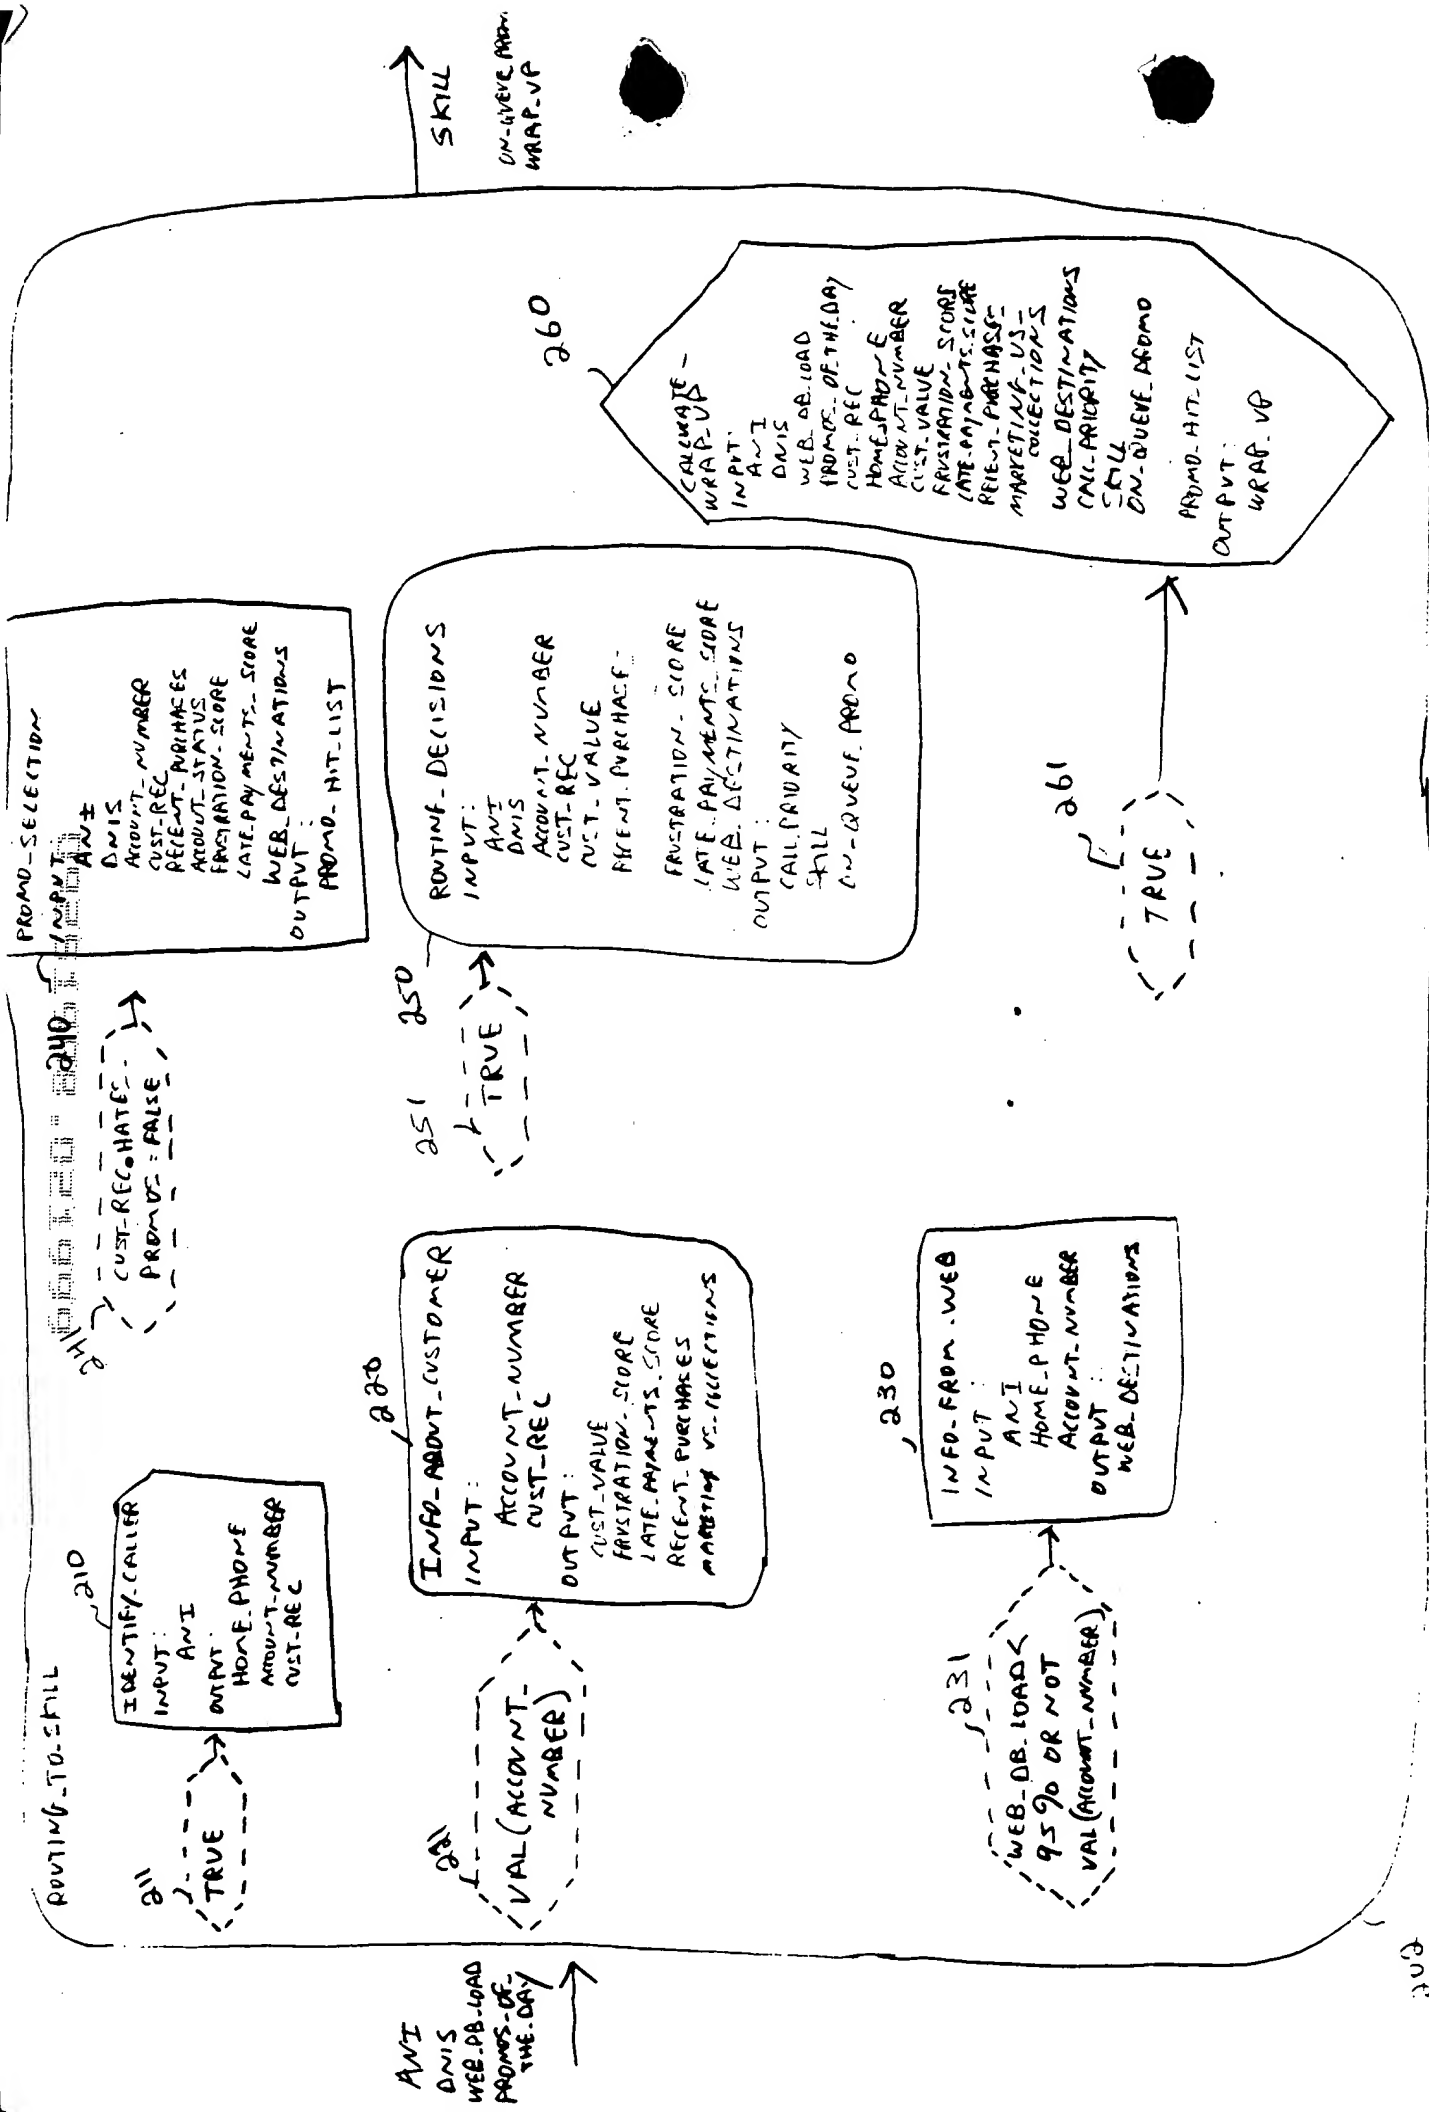 ROUTING_TO_SKILL
ANI
DNIS
WEB_DB_LOAD
PROMOS_OF_
THE_DAY
211
TRUE
210
IDENTIFY_CALLER
INPUT:
ANI
OUTPUT:
HOME_PHONE
ACCOUNT_NUMBER
CUST_REC
221
VAL(ACCOUNT_
NUMBER)
220
INFO_ABOUT_CUSTOMER
INPUT:
ACCOUNT_NUMBER
CUST_REC
OUTPUT:
CUST_VALUE
FRUSTRATION_SCORE
LATE_PAYMENTS_SCORE
RECENT_PURCHASES
MARKETING_VS_COLLECTIONS
231
WEB_DB_LOAD <
95% OR NOT
VAL(ACCOUNT_NUMBER)
230
INFO_FROM_WEB
INPUT:
ANI
HOME_PHONE
ACCOUNT_NUMBER
OUTPUT:
WEB_DESTINATIONS
241
CUST_REC.HATES_
PROMOS = FALSE
240
PROMO_SELECTION
INPUT:
ANI
DNIS
ACCOUNT_NUMBER
CUST_REC
RECENT_PURCHASES
ACCOUNT_STATUS
FRUSTRATION_SCORE
LATE_PAYMENTS_SCORE
WEB_DESTINATIONS
OUTPUT:
PROMO_HIT_LIST
251
TRUE
250
ROUTING_DECISIONS
INPUT:
ANI
DNIS
ACCOUNT_NUMBER
CUST_REC
CUST_VALUE
RECENT_PURCHASE-
FRUSTRATION_SCORE
LATE_PAYMENTS_SCORE
WEB_DESTINATIONS
OUTPUT:
CALL_PRIORITY
SKILL
ON_QUEUE_PROMO
261
TRUE
260
CALCULATE_
WRAP_UP
INPUT:
ANI
DNIS
WEB_DB_LOAD
PROMOS_OF_THE_DAY
CUST_REC
HOME_PHONE
ACCOUNT_NUMBER
CUST_VALUE
FRUSTRATION_SCORE
LATE_PAYMENTS_SCORE
RECENT_PURCHASE-
MARKETING_VS_
COLLECTIONS
WEB_DESTINATIONS
CALL_PRIORITY
SKILL
ON_QUEUE_PROMO
PROMO_HIT_LIST
OUTPUT:
WRAP_UP
SKILL
ON_QUEUE_PROMO
WRAP_UP